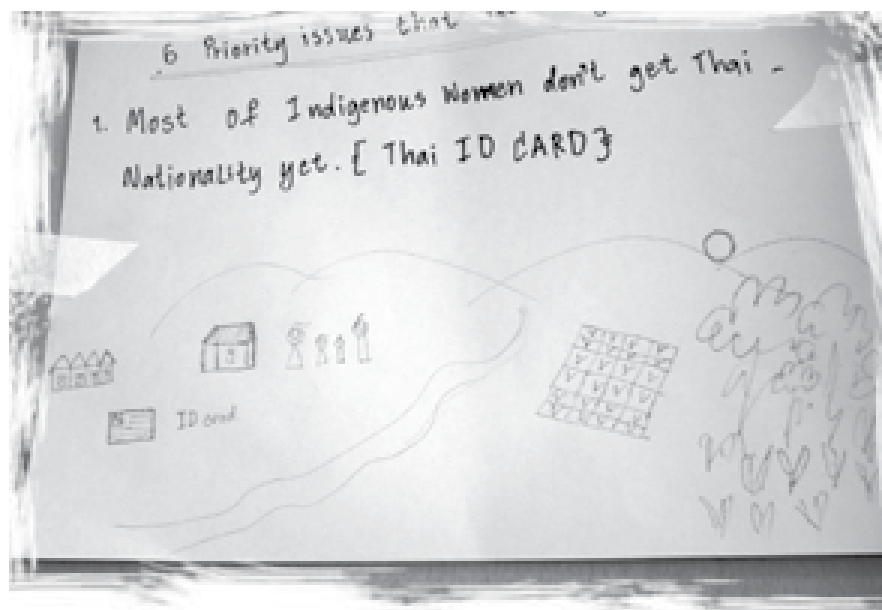 6 Priority issues that
1. Most of Indigenous Women don't get Thai -
Nationality yet. [ Thai ID CARD }
ID card